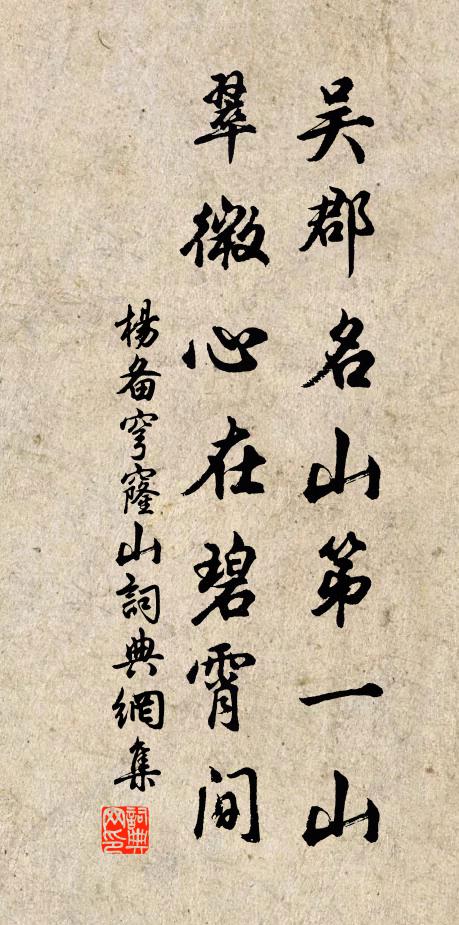 吴郡名山第一山
翠微心在碧霄间
楊备穹窿山詞典網集
詞典网印